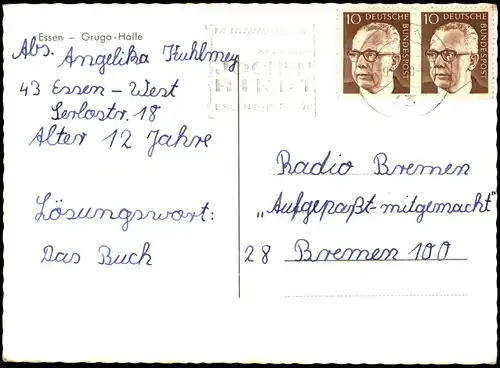 Essen – Gruga-Halle
Abs. Angelika Kuhlmey
43 Essen – West
Serlostr. 18
Alter 12 Jahre
Lösungswort:
Das Buch
10 DEUTSCHE BUNDESPOST
10 DEUTSCHE BUNDESPOST
Radio Bremen
„Aufgepaßt-mitgemacht"
28 Bremen 100